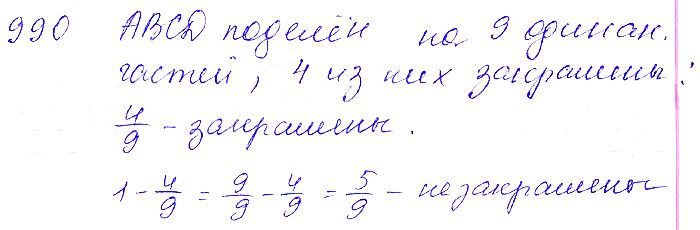 990 ABCD поделён на 9 одинак.
частей, 4 из них закрашены:
4/9 - закрашены.
1 - 4/9 = 9/9 - 4/9 = 5/9 - незакрашены